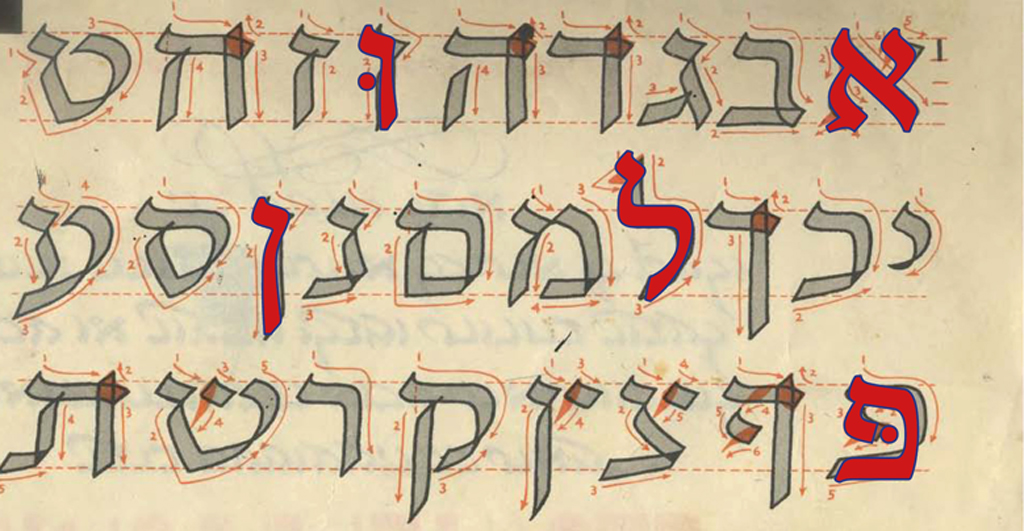 א ב ג ד ה וּ ז ח ט
י כ ך ל מ ם נ ן ס ע
פּ ף צ ץ ק ר ש ת